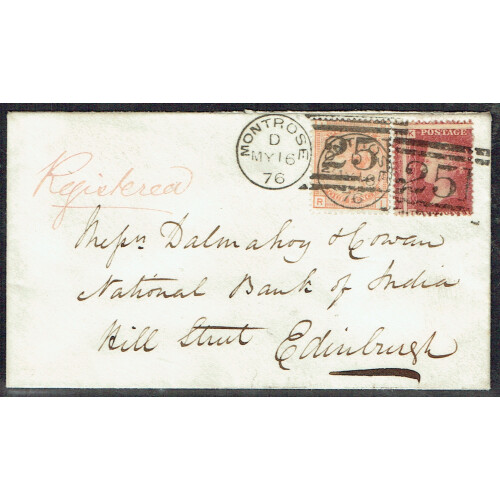 MONTROSE
D
MY 16
76
255
POSTAGE
25
R
Registered
Messrs Dalmahoy & Cowan
National Bank of India
Hill Street Edinburgh